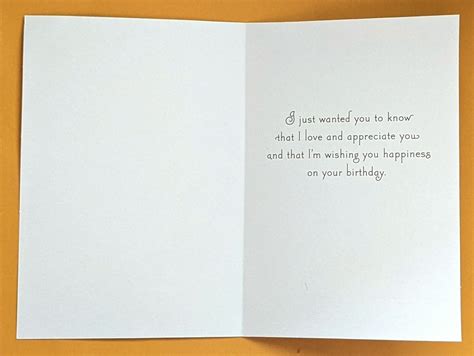 I just wanted you to know
that I love and appreciate you
and that I'm wishing you happiness
on your birthday.